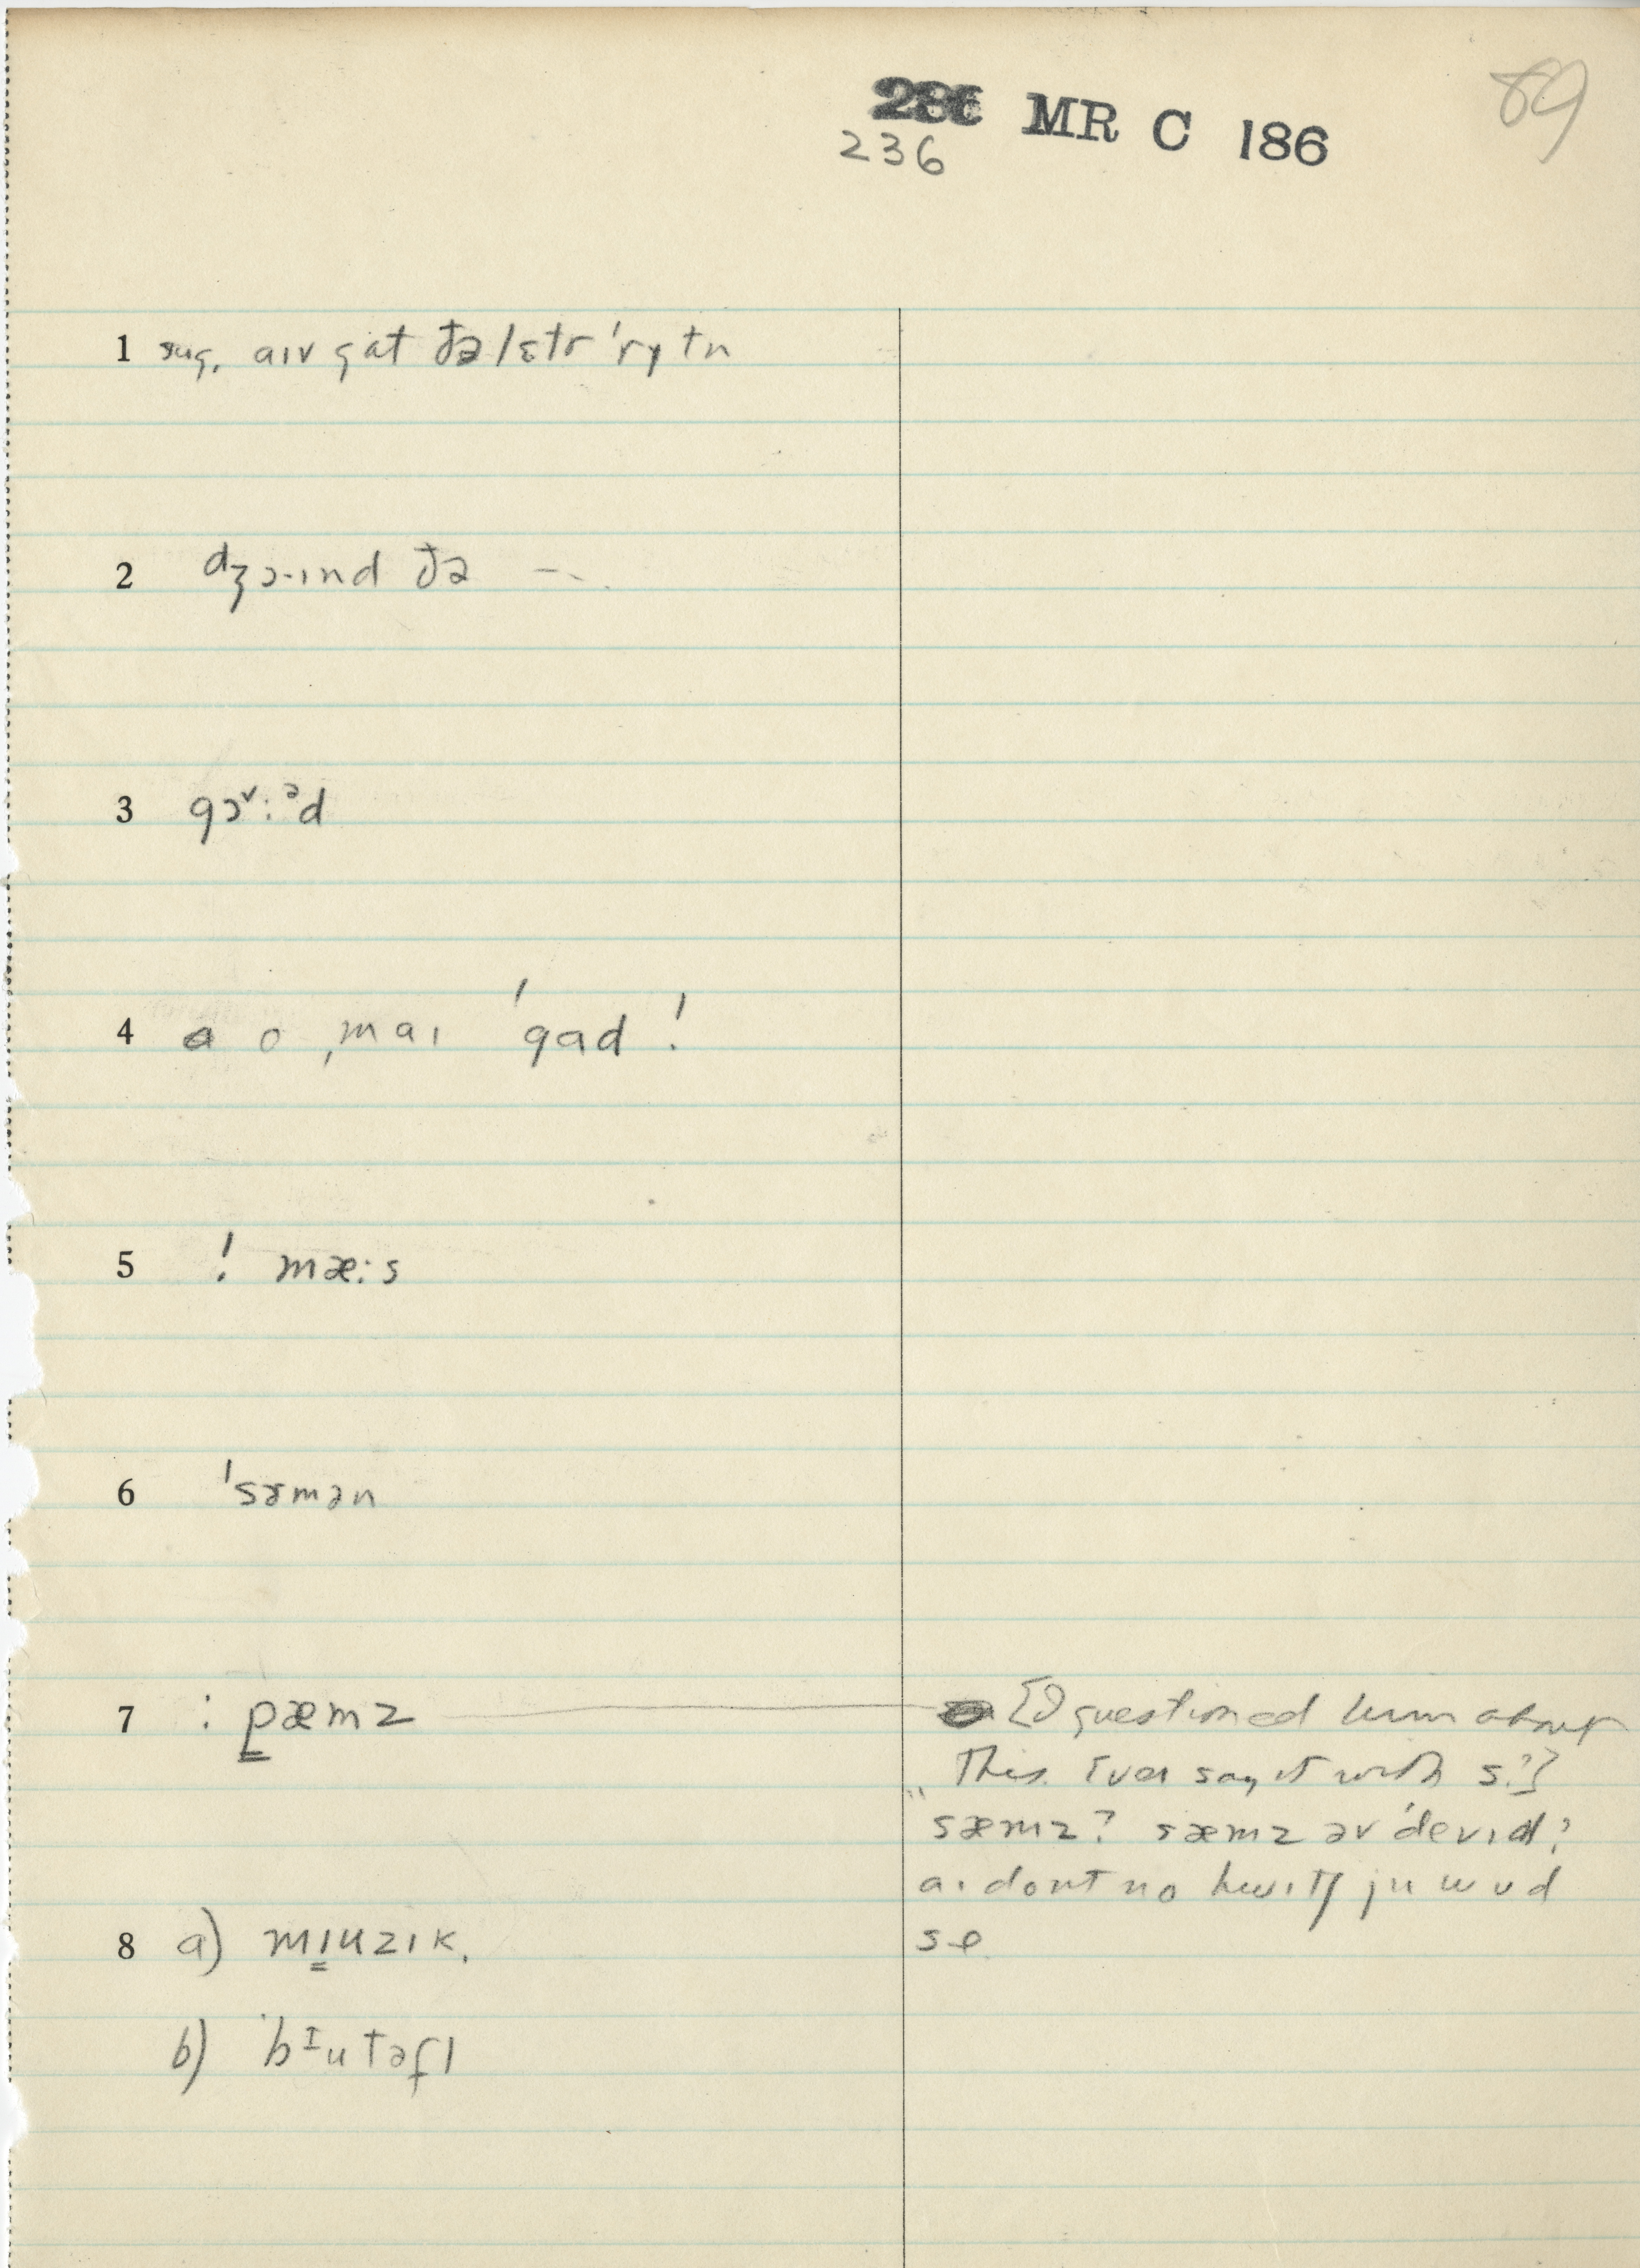 286 MR C 186
236
89
1 sug. aɪv gat ðə/ɛtr 'rɪtn
2 dʒɔ·ɪnd ðə --.
3 gɔ˅:ᵊd
4 o ˌmaɪ 'gad !
5 ! mæ:s
6 'sɜmən
7 : pæmz
[I questioned him about
This. Ever say it with s?]
"sæmz? sæmz əv 'devɪd?
aɪ dont no hwɪtʃ ju wʊd
se
8 a) mɪuzɪk.
b) bɪutəfl